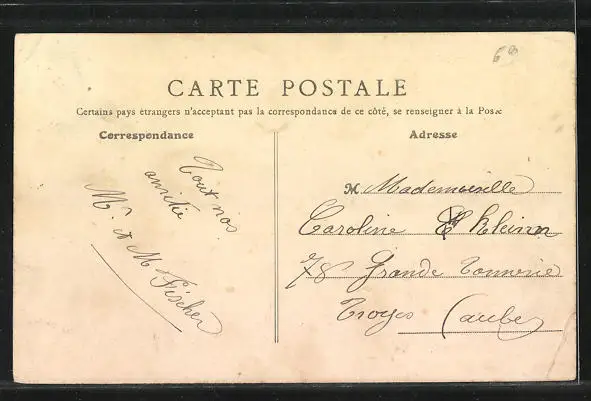 68
CARTE POSTALE
Certains pays étrangers n'acceptant pas la correspondance de ce côté, se renseigner à la Poste
Correspondance
Tout nos
amitié
Mr et M Fischer
Adresse
M Mademoiselle
Caroline Kleinn
78 Grande Tonnerie
Troyes (aube)